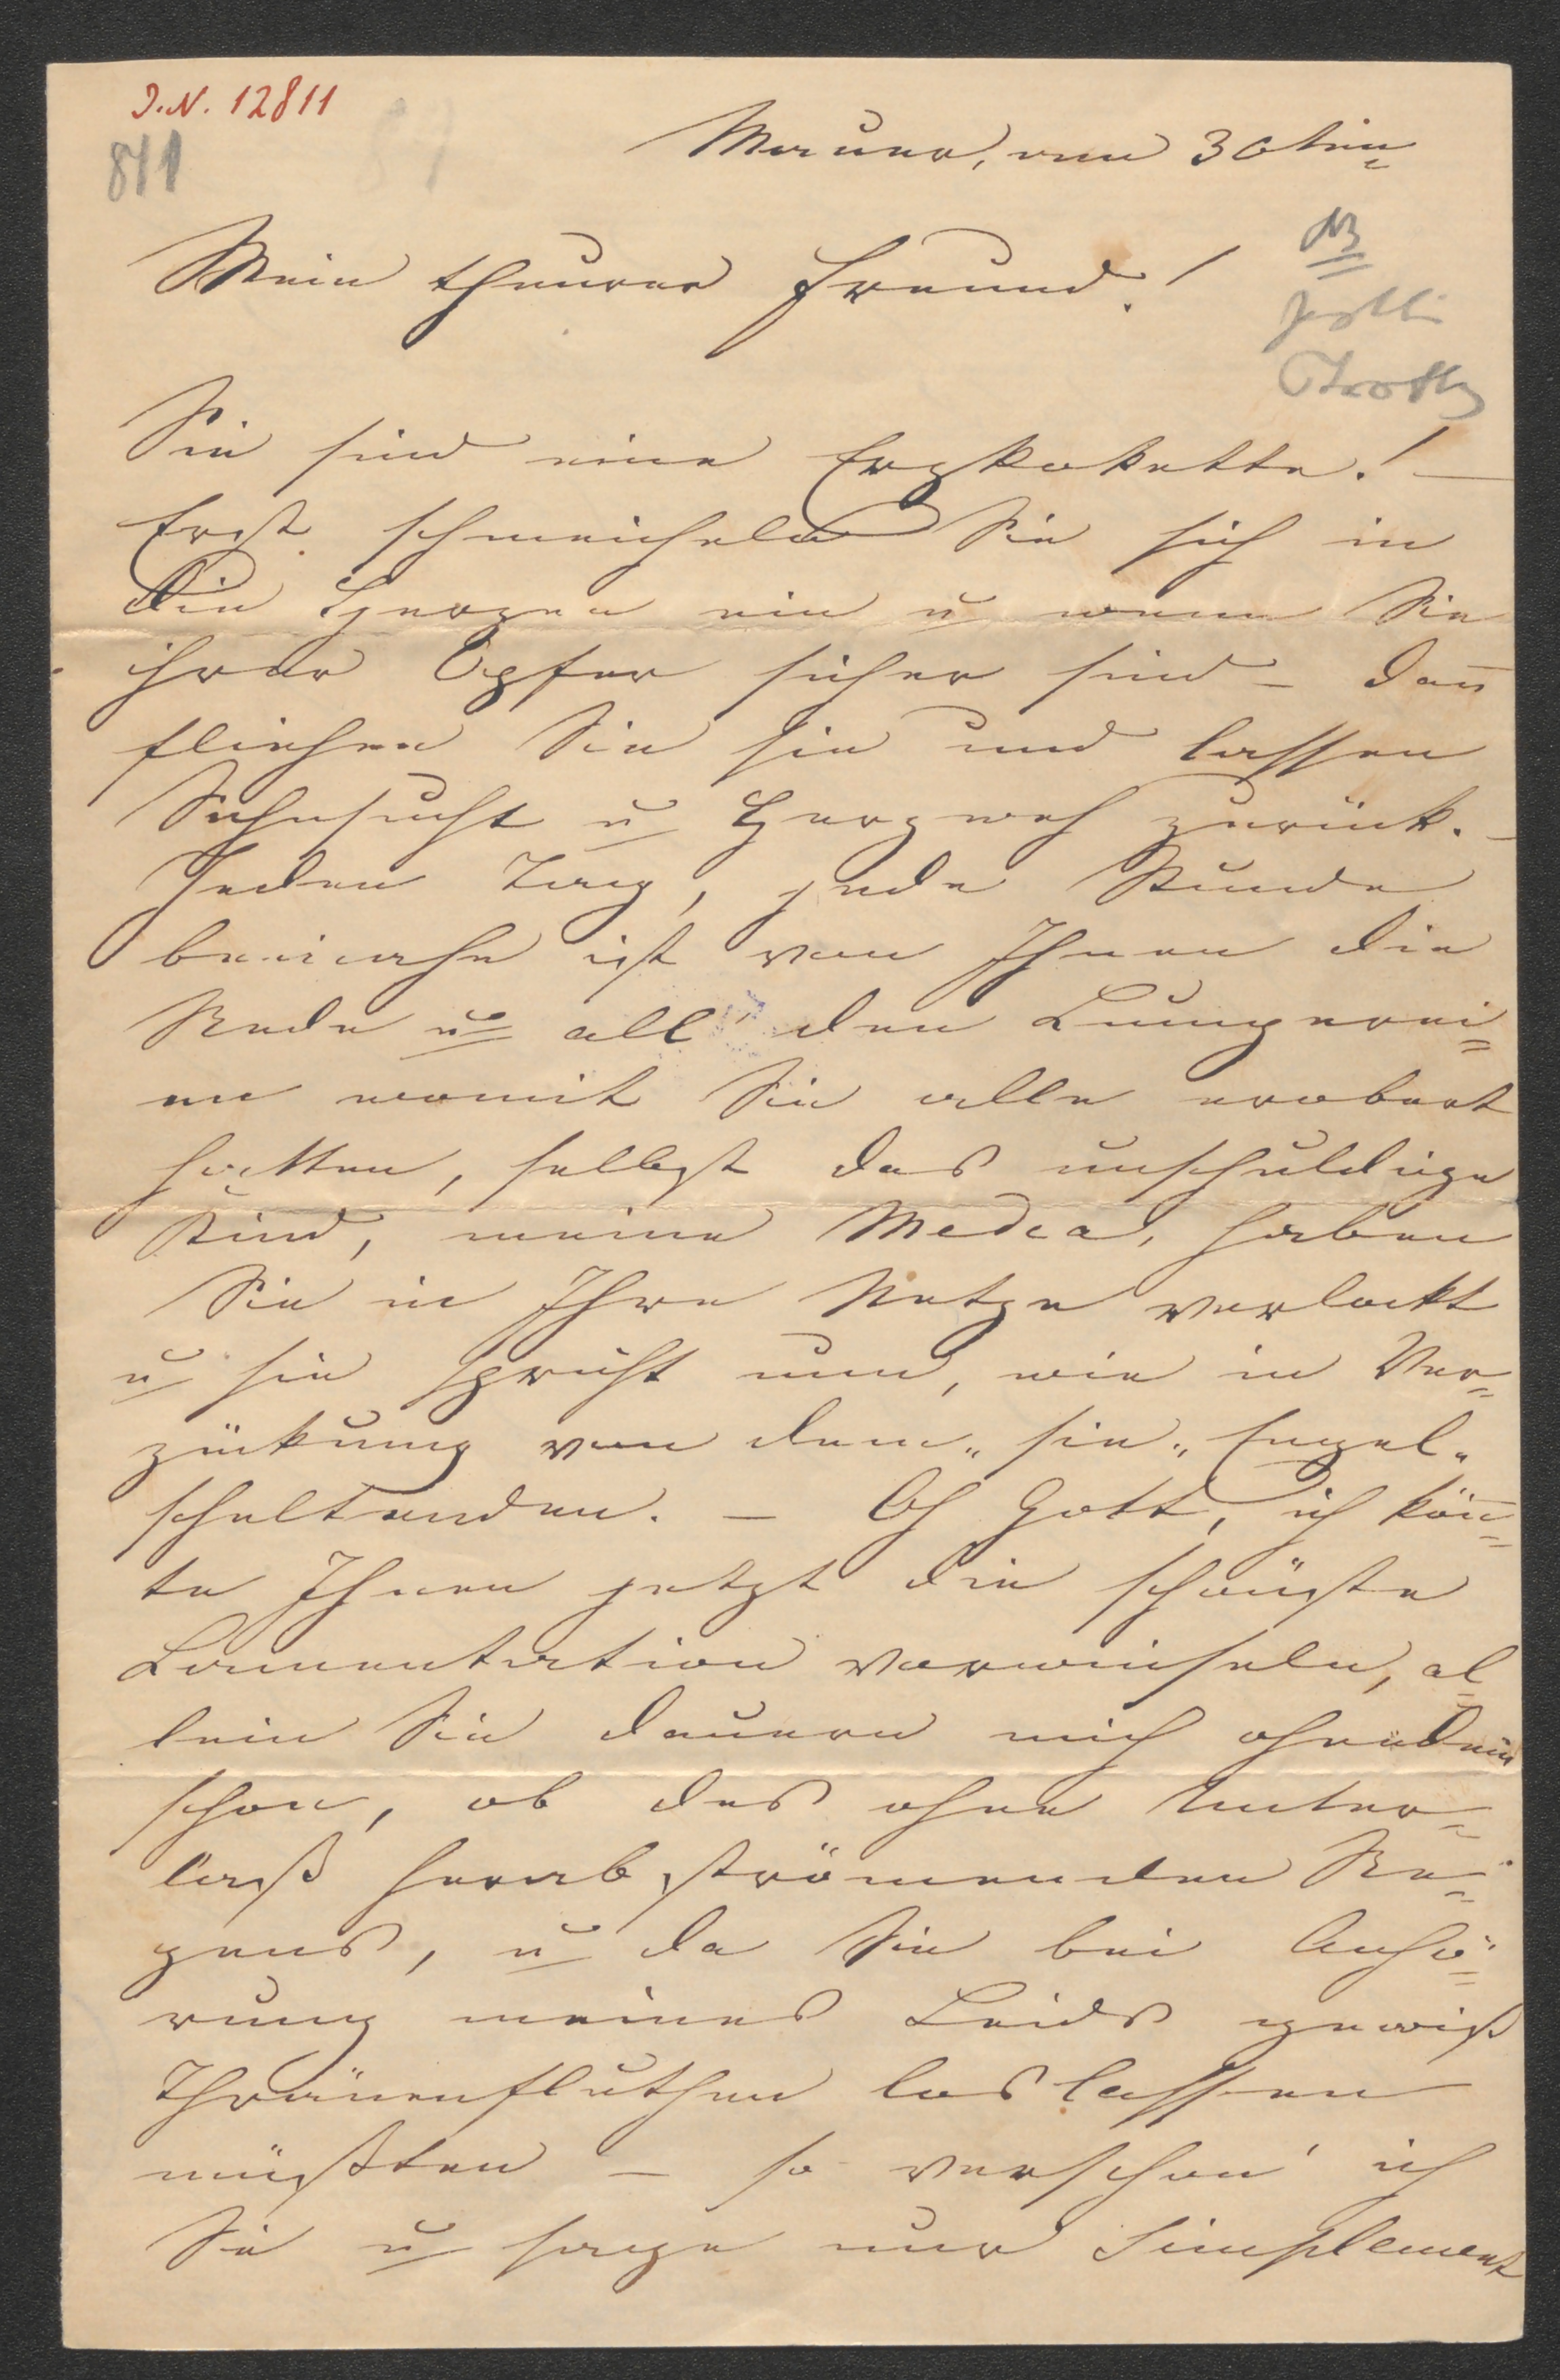 J.N. 12811
811
Mauer, am 30ten
Mein theurer Freund!
Sie sind eine Erzkokette! –
Erst schmeicheln Sie sich in
die Herzen ein u wenn Sie
ihrer Opfer sicher sind – dañ
fliehen Sie sie und lassen
Sehnsucht u Herzweh zurück. –
Jeden Tag, jede Stunde
beinahe ist von Ihnen die
Rede u all' den Lumperei=
en womit Sie alle erobert
hatten, selbst das unschuldige
Kind, meine Medea, haben
Sie in Ihre Netze verlockt
u sie spricht nun, wie in Ver=
zückung von dem „sie„ Engel„
scheltenden. – Oh Gott, ich köñ=
te Ihnen jetzt die schönste
Lamentation vorwinseln, al
lein Sie dauern mich ohnedem
schon, ob des ohne Unter=
laß herabströmenden Re=
gens, u da Sie bei Anhö=
rung meines Leids gewiß
Thränenfluthen loslassen
müßten – so verschon' ich
Sie u sage nur simplement